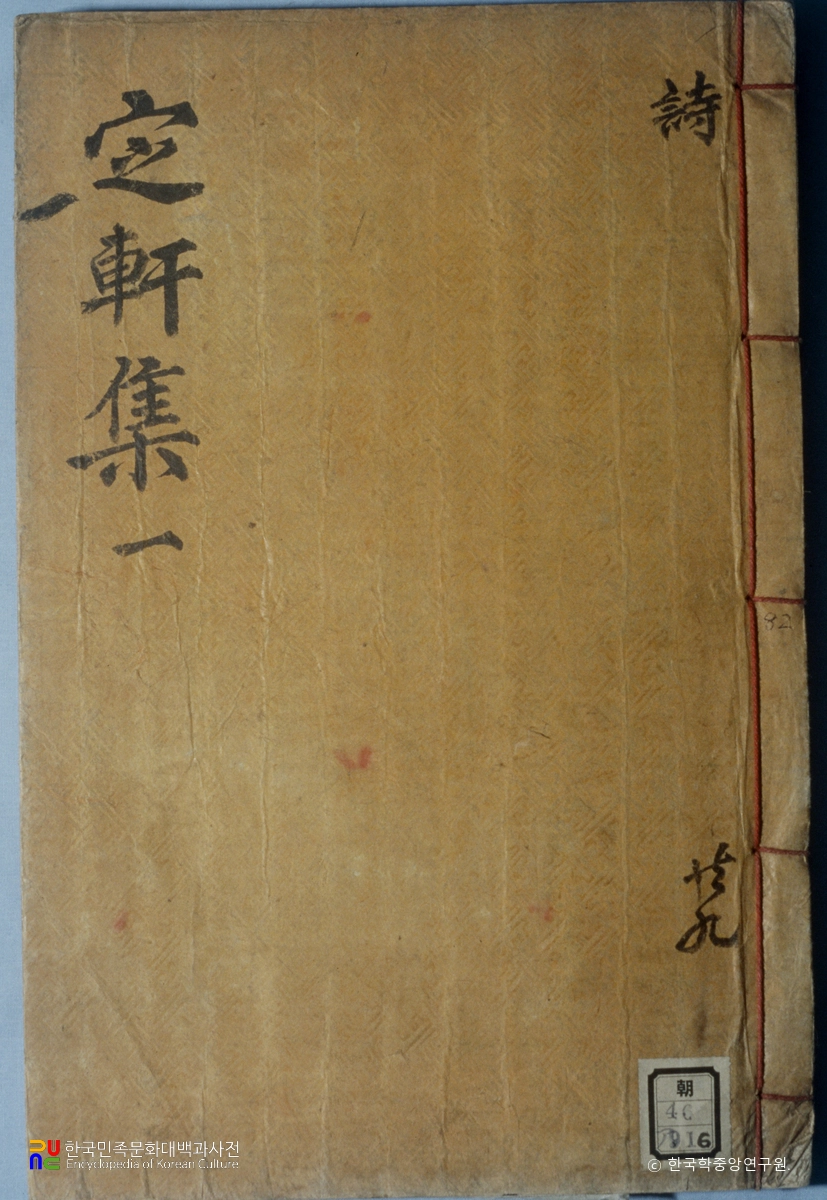 詩
定軒集 一
一
共九
82
朝
46
한국민족문화대백과사전
Encyclopedia of Korean Culture
© 한국학중앙연구원